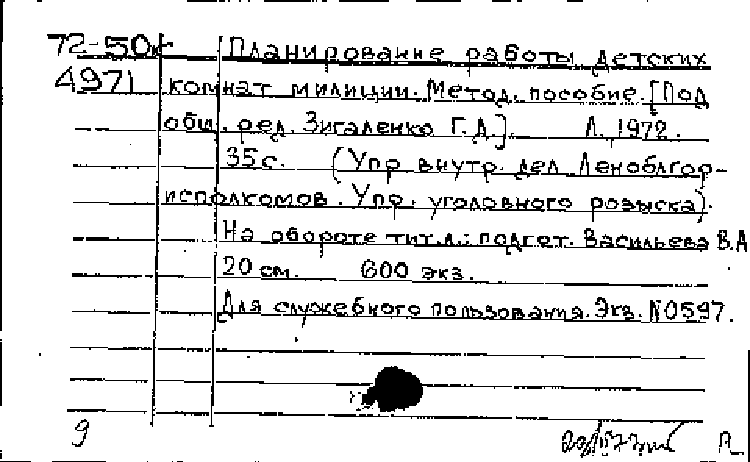 72-50к Планирование работы детских
4971 комнат милиции. Метод. пособие. [Под
общ. ред. Зигаленко Г.Д.]. Л. 1972.
35с. (Упр внутр. дел Леноблгор-
исполкомов. Упр. уголовного розыска).
На обороте тит.л.: подгот. Васильева В.А
20 см. 600 экз.
Для служебного пользования. Экз. №0597.
9 Л